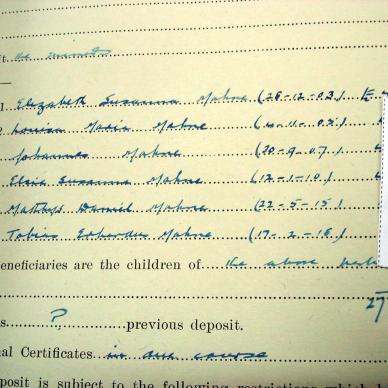 t.
1. Elizabeth Susanna Mahne (26-12-03.)
Louisa Maria Mahne
Johannes Mahne (20-9-07.)
Elsie Susanna Mahne (12-1-10.)
Matthys Daniel Mahne (22-5-15.)
Tobias Mahne (17-2-18.)
eneficiaries are the children of the above
27
s ? previous deposit.
al Certificates in due course
posit is subject to the following restrictions which